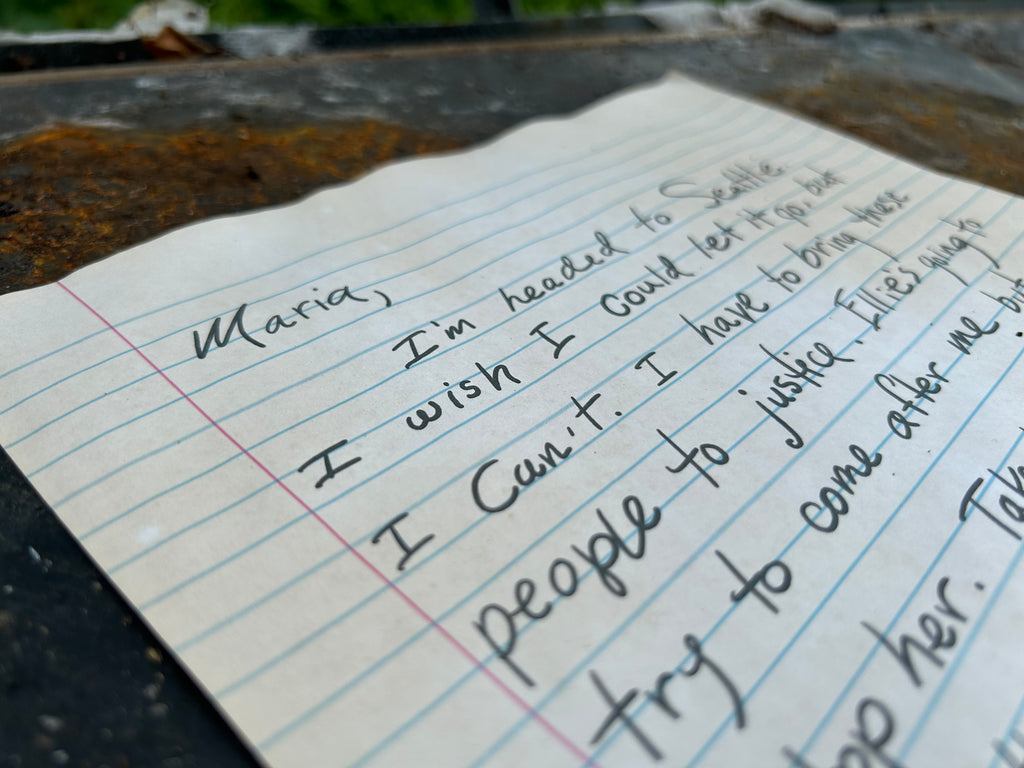 Maria,
I'm headed to Seattle.
I wish I could let it go, but
I Can't. I have to bring these
people to justice. Ellie's going to
try to come after me but
her. Tak